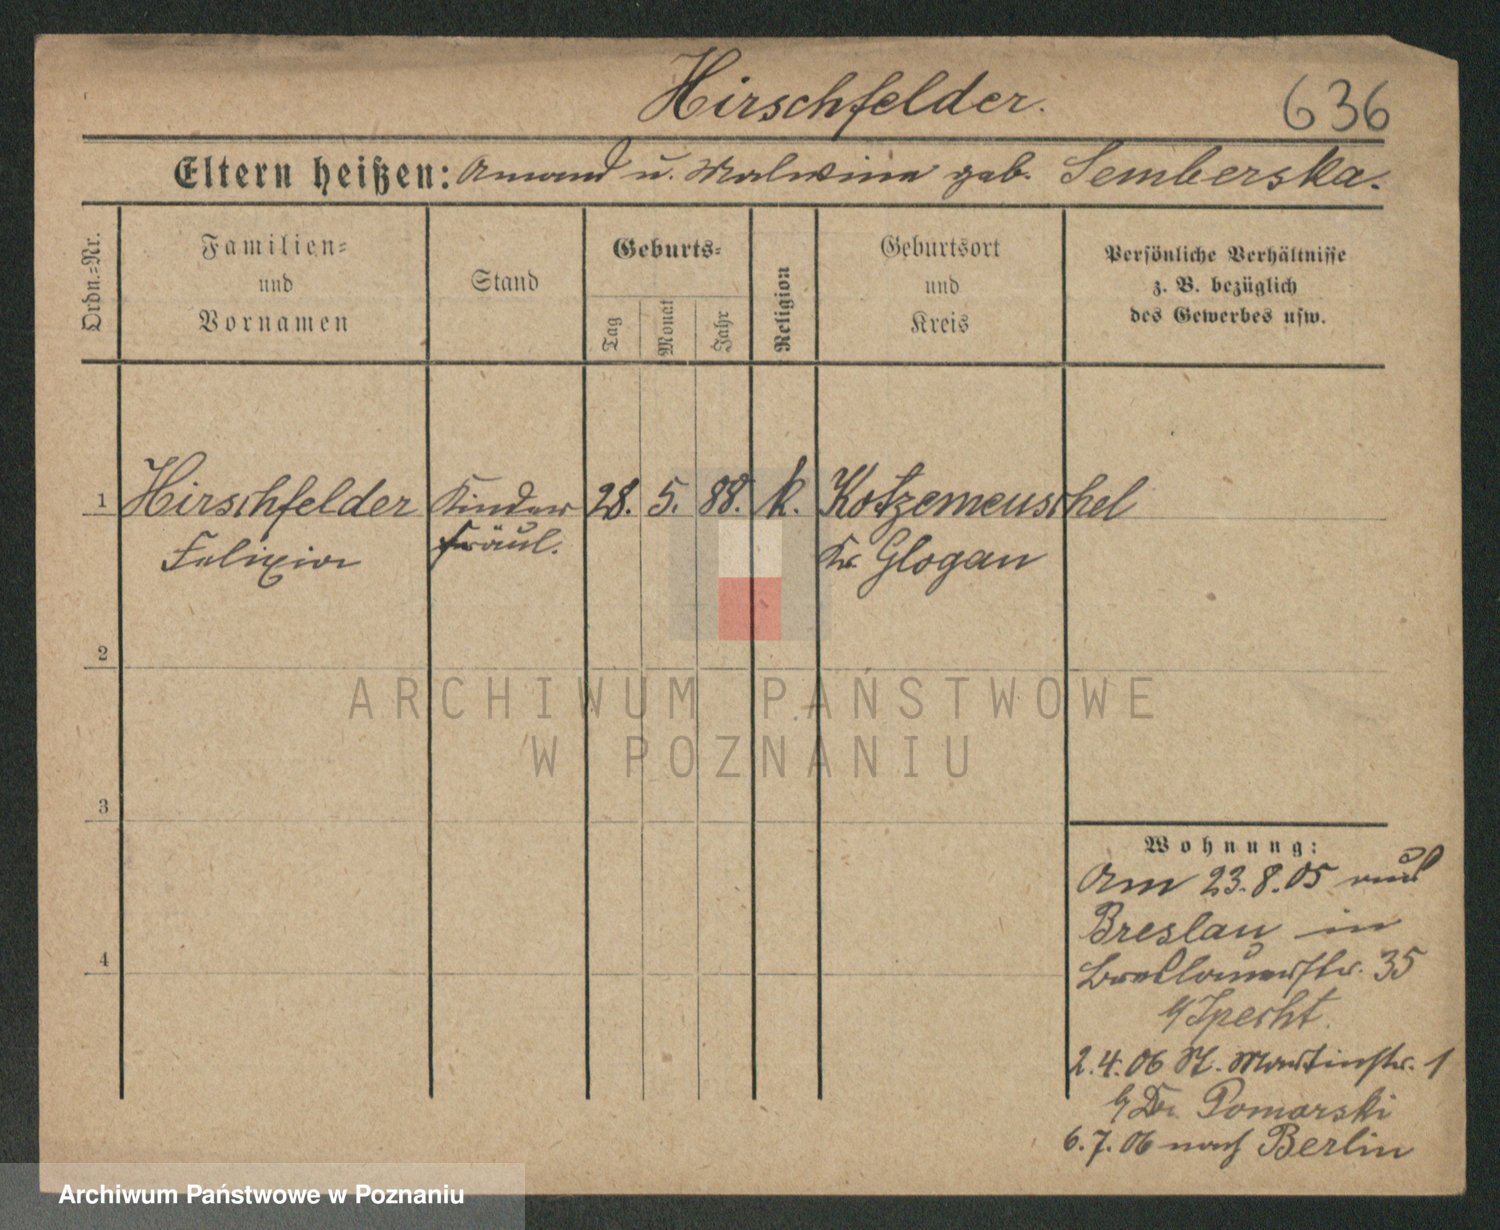 Hirschfelder.
636
Eltern heißen: Amand u. Malwina geb. Semberska.
Ordn.=Nr.
Familien=
und
Vornamen
Stand
Geburts=
Tag
Monat
Jahr
Religion
Geburtsort
und
Kreis
Persönliche Verhältnisse
z. B. bezüglich
des Gewerbes usw.
1 Hirschfelder Kinder 28. 5. 88. k. Kotzemeuschel
fräul. Kr. Glogau
2
ARCHIWUM PAŃSTWOWE
W POZNANIU
3
4
Wohnung:
Am 23.8.05 aus
Breslau in
Breslauerstr. 35
b/ Specht.
2.4.06 St. Martinstr. 1
b/ Dr. Pomorski
6.7.06 nach Berlin
Archiwum Państwowe w Poznaniu